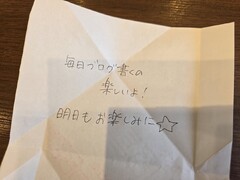 毎日ブログ書くの
楽しいよ!
明日もお楽しみに☆